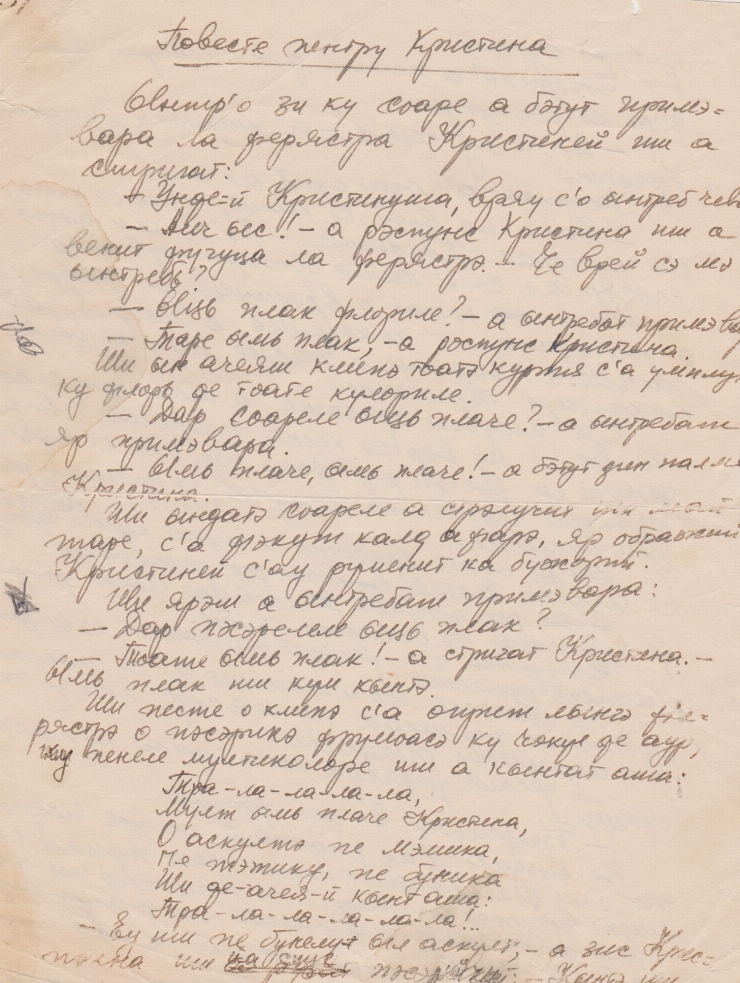 Повесте пентру Кристина
Ынтр'о зи ку соаре а бэтут примэ-
вара ла ферястра Кристиней ши а
стригат:
— Унде-й Кристинуша, вряу с'о ынтреб чева
— Аич ыс! — а рэспунс Кристина ши а
венит фугуца ла ферястрэ. — Че врей сэ мэ
ынтребь?
— Ыць плак флориле? — а ынтребат примэвара
— Таре ымь плак, — а рэспунс Кристина.
Ши ын ачеяш клипэ тоатэ куртя с'а умплут
ку флорь де тоате кулориле.
— Дар соареле ыць плаче? — а ынтребат
яр примэвара.
— Ымь плаче, ымь плаче! — а бэтут дин палме
Кристина.
Ши ындатэ соареле а стрэлучит ши май
таре, с'а фэкут калд афарэ, яр ображий
Кристиней с'ау руменит ка бужорий.
Ши ярэш а ынтребат примэвара:
— Дар пэсэреле ыць плак?
— Тоате ымь плак! — а стригат Кристина. —
Ымь плак ши кум кынтэ.
Ши песте о клипэ с'а оприт лынгэ фе-
рястрэ о пэсэрикэ фрумоасэ ку чокул де аур,
ку пенеле мултиколоре ши а кынтат аша:
Тра-ла-ла-ла-ла,
Мулт ымь плаче Кристина,
О аскултэ пе мэмика,
Пе тэтику, пе буника
Ши де-ачея-й кынт аша:
Тра-ла-ла-ла-ла-ла!..
— Еу ши пе бунелу ыл аскулт, — а зис Крис-
тина ши пэсэрий: — Кынтэ ши